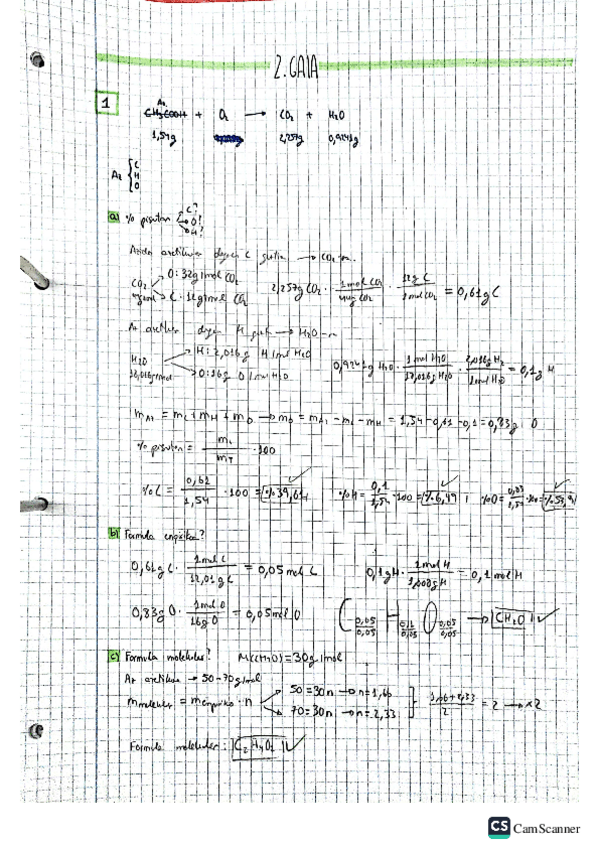 2. GAIA
1
Az.
CH3COOH + O2 → CO2 + H2O
1,54g 2,257g 0,9241g
Az { C H O
a) % pisutan { C? O? H?
Azido azetikoaren dagoen C guztia → CO2-n.
CO2 O: 32g/mol CO2
C: 12g/mol CO2
2,257g CO2 · 1mol CO2 / 44g CO2 · 12g C / 1mol CO2 = 0,61g C
Az dagoen H guztia → H2O-n
H2O H: 2,016g H/mol H2O
18,016g/mol O: 16g O/mol H2O
0,9241g H2O · 1mol H2O / 18,016g H2O · 2,016g H2 / 1mol H2O = 0,1g H
mAz = mC + mH + mO → mO = mAz - mC - mH = 1,54 - 0,61 - 0,1 = 0,83g O
% pisutan = m / mT · 100
%C = 0,61 / 1,54 · 100 = %39,61 %H = 0,1 / 1,54 · 100 = %6,49 ; %O = 0,83 / 1,54 · 100 = %53,9
b) Formula enpirikoa?
0,61g C · 1mol C / 12,01g C = 0,05 mol C 0,1g H · 1mol H / 1,008g H = 0,1 mol H
0,83g O · 1mol O / 16g O = 0,05 mol O C 0,05/0,05 H 0,1/0,05 O 0,05/0,05 → CH2O
c) Formula molekularra? M(CH2O) = 30g/mol
Az → 50-70g/mol
mmolekular = menpirikoa · n 50 = 30n → n = 1,66
70 = 30n → n = 2,33
1,66 + 2,33 / 2 = 2 → x2
Formula molekularra: C2H4O2
CS CamScanner